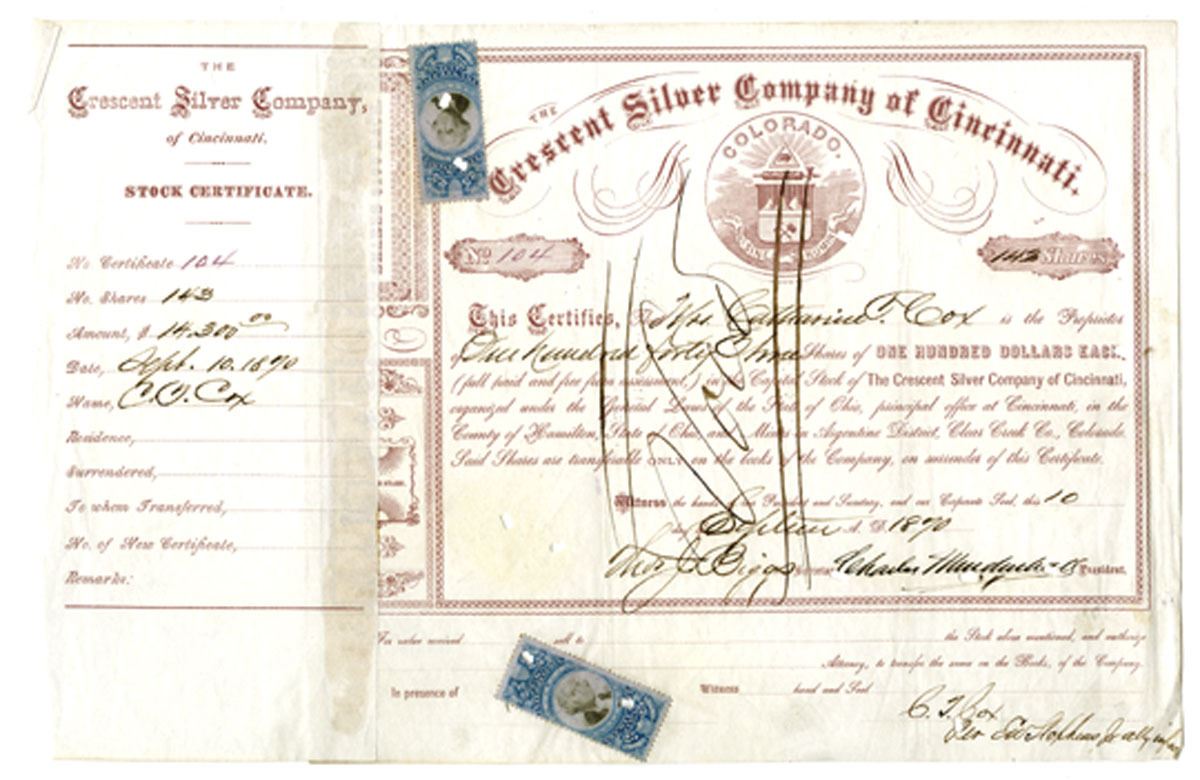 THE
Crescent Silver Company,
of Cincinnati.
STOCK CERTIFICATE.
No. Certificate 104
No. Shares 143
Amount, $ 14.300 00
Date, Sept. 10. 1870
Name, C.O. Cox
Residence,
Surrendered,
To whom Transferred,
No. of New Certificate,
Remarks:
THE Crescent Silver Company of Cincinnati.
COLORADO.
No 104
143 Shares
This Certifies, Mrs. Catharine T. Cox is the Proprietor
of One hundred forty Three Shares of ONE HUNDRED DOLLARS EACH,
(full paid and free from assessment,) in the Capital Stock of The Crescent Silver Company of Cincinnati,
organized under the General Laws of the State of Ohio, principal office at Cincinnati, in the
County of Hamilton, State of Ohio, and Mines in Argentine District, Clear Creek Co., Colorado.
Said Shares are transferable ONLY on the books of the Company, on surrender of this Certificate.
Witness the hands of our President and Secretary, and our Corporate Seal, this 10
day A. D. 1870
J. Biggs Secretary Charles President.
For value received sell to the Stock above mentioned, and authorize
Attorney, to transfer the same on the Books, of the Company.
In presence of Witness hand and Seal
C. T. Cox